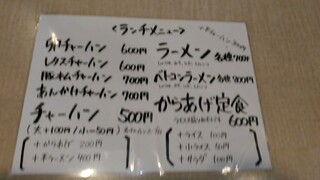 <ランチメニュー>
チャーハン 600円
レタスチャーハン 600円
豚キムチャーハン 700円
あんかけチャーハン 700円
チャーハン 500円
(大+100円/小-50円)
+からあげ 200円
+半ラーメン 400円
ラーメン 各種700円
ベトコンラーメン 各種800円
からあげ定食
600円
+ライス 100円
+小ライス 50円
+サラダ 100円